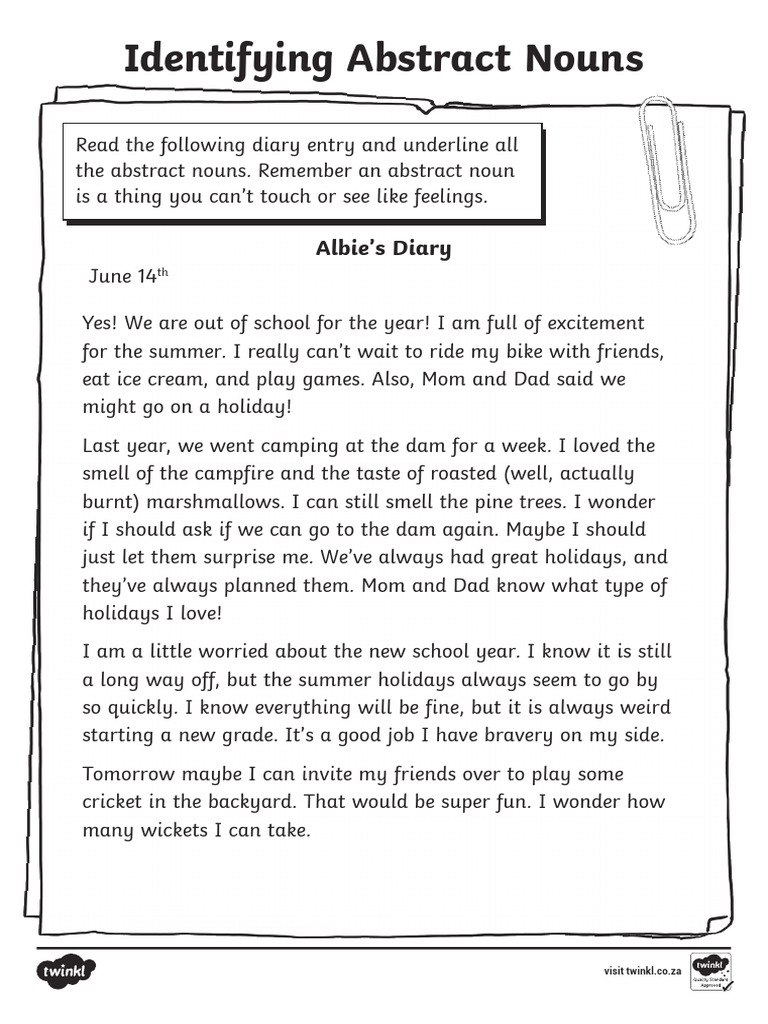 Identifying Abstract Nouns
Read the following diary entry and underline all
the abstract nouns. Remember an abstract noun
is a thing you can’t touch or see like feelings.
Albie’s Diary
June 14th
Yes! We are out of school for the year! I am full of excitement
for the summer. I really can’t wait to ride my bike with friends,
eat ice cream, and play games. Also, Mom and Dad said we
might go on a holiday!
Last year, we went camping at the dam for a week. I loved the
smell of the campfire and the taste of roasted (well, actually
burnt) marshmallows. I can still smell the pine trees. I wonder
if I should ask if we can go to the dam again. Maybe I should
just let them surprise me. We’ve always had great holidays, and
they’ve always planned them. Mom and Dad know what type of
holidays I love!
I am a little worried about the new school year. I know it is still
a long way off, but the summer holidays always seem to go by
so quickly. I know everything will be fine, but it is always weird
starting a new grade. It’s a good job I have bravery on my side.
Tomorrow maybe I can invite my friends over to play some
cricket in the backyard. That would be super fun. I wonder how
many wickets I can take.
twinkl
visit twinkl.co.za
twinkl
Quality Standard
Approved